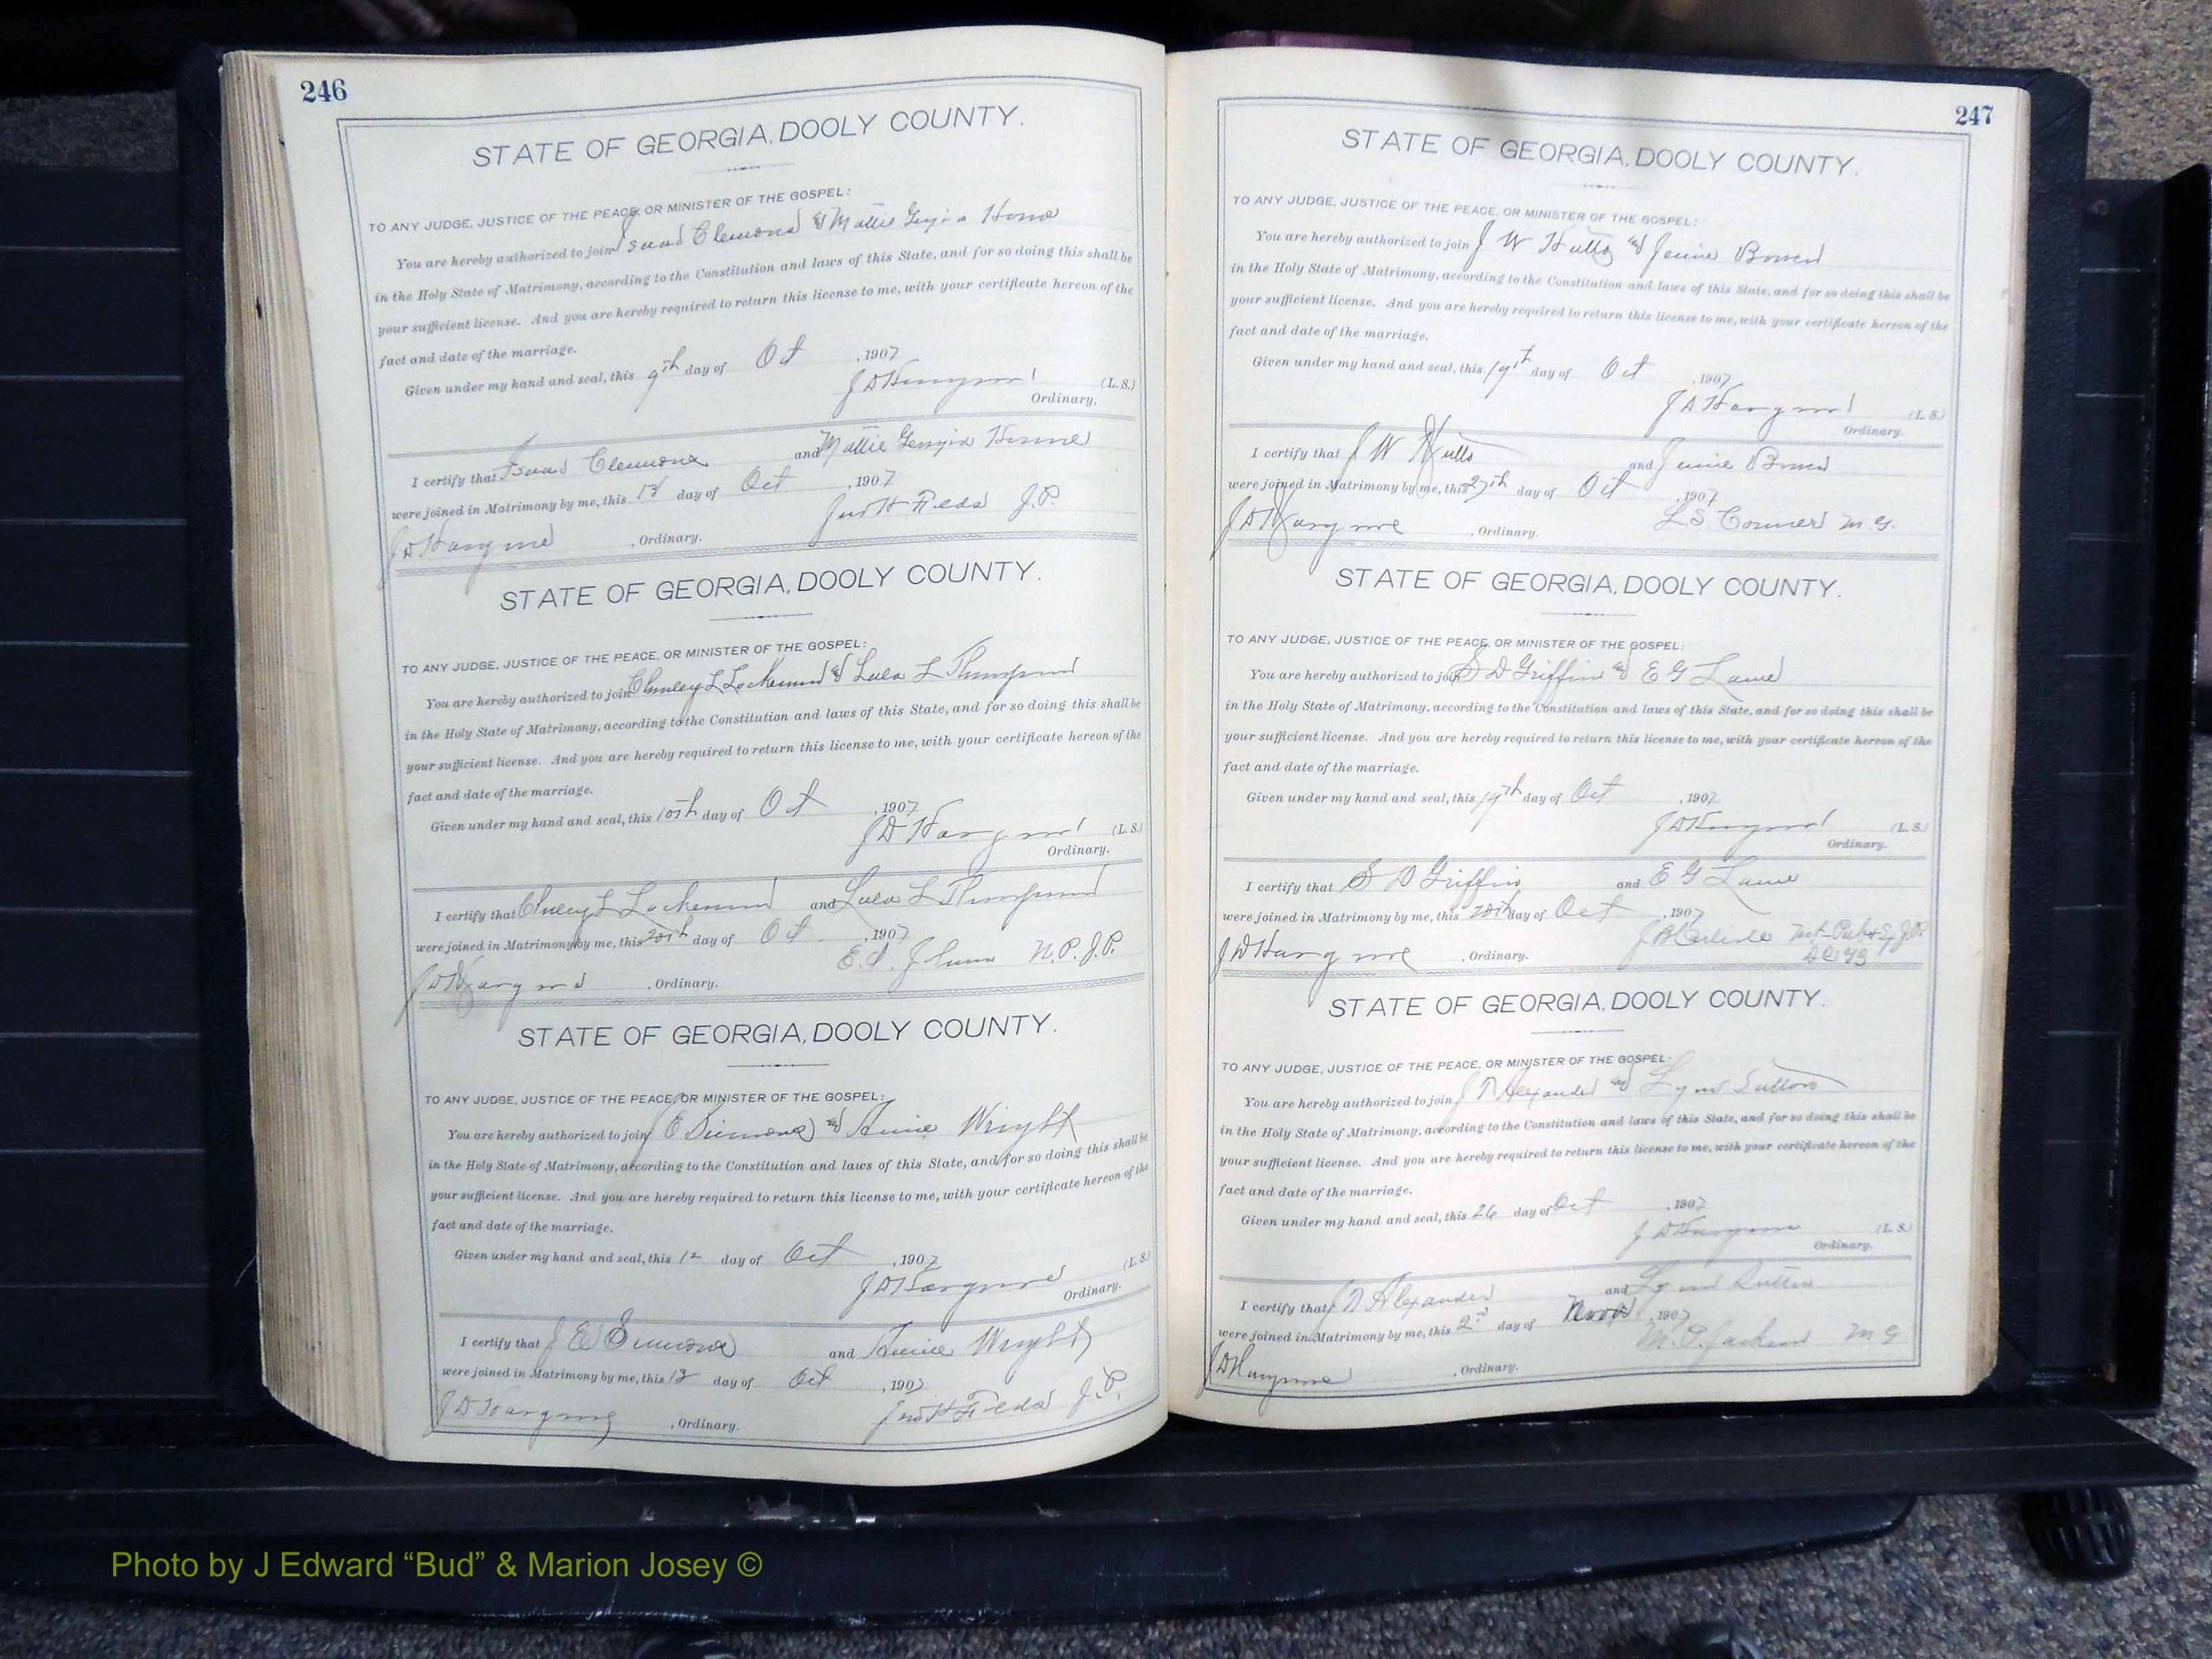 246
STATE OF GEORGIA, DOOLY COUNTY.
TO ANY JUDGE, JUSTICE OF THE PEACE, OR MINISTER OF THE GOSPEL:
You are hereby authorized to join Isaac Clemons & Mattie Georgia Horne
in the Holy State of Matrimony, according to the Constitution and laws of this State, and for so doing this shall be
your sufficient license. And you are hereby required to return this license to me, with your certificate hereon of the
fact and date of the marriage.
Given under my hand and seal, this 9th day of Oct, 1907
J D Hargrove (L. S.)
Ordinary.
I certify that Isaac Clemons and Mattie Georgia Horne
were joined in Matrimony by me, this 13 day of Oct, 1907
Jno H Fields J.P.
J D Hargrove, Ordinary.
STATE OF GEORGIA, DOOLY COUNTY.
TO ANY JUDGE, JUSTICE OF THE PEACE, OR MINISTER OF THE GOSPEL:
You are hereby authorized to join L & Lula L
in the Holy State of Matrimony, according to the Constitution and laws of this State, and for so doing this shall be
your sufficient license. And you are hereby required to return this license to me, with your certificate hereon of the
fact and date of the marriage.
Given under my hand and seal, this 10th day of Oct, 1907
J D Hargrove (L. S.)
Ordinary.
I certify that L and Lula L
were joined in Matrimony by me, this 20th day of Oct, 1907
N.P.J.P.
J D Hargrove, Ordinary.
STATE OF GEORGIA, DOOLY COUNTY.
TO ANY JUDGE, JUSTICE OF THE PEACE, OR MINISTER OF THE GOSPEL:
You are hereby authorized to join J E Simmons & Annie Wright
in the Holy State of Matrimony, according to the Constitution and laws of this State, and for so doing this shall be
your sufficient license. And you are hereby required to return this license to me, with your certificate hereon of the
fact and date of the marriage.
Given under my hand and seal, this 12 day of Oct, 1907
J D Hargrove (L. S.)
Ordinary.
I certify that J E Simmons and Annie Wright
were joined in Matrimony by me, this 13 day of Oct, 1907
Jno H Fields J.P.
J D Hargrove, Ordinary.
247
STATE OF GEORGIA, DOOLY COUNTY.
TO ANY JUDGE, JUSTICE OF THE PEACE, OR MINISTER OF THE GOSPEL:
You are hereby authorized to join J W Hutto and Jennie Bowen
in the Holy State of Matrimony, according to the Constitution and laws of this State, and for so doing this shall be
your sufficient license. And you are hereby required to return this license to me, with your certificate hereon of the
fact and date of the marriage.
Given under my hand and seal, this 19th day of Oct, 1907
J D Hargrove (L. S.)
Ordinary.
I certify that J W Hutto and Jennie Bowen
were joined in Matrimony by me, this 27th day of Oct, 1907
L S Conner M. G.
J D Hargrove, Ordinary.
STATE OF GEORGIA, DOOLY COUNTY.
TO ANY JUDGE, JUSTICE OF THE PEACE, OR MINISTER OF THE GOSPEL:
You are hereby authorized to join S D Griffin and E G Lane
in the Holy State of Matrimony, according to the Constitution and laws of this State, and for so doing this shall be
your sufficient license. And you are hereby required to return this license to me, with your certificate hereon of the
fact and date of the marriage.
Given under my hand and seal, this 19th day of Oct, 1907
J D Hargrove (L. S.)
Ordinary.
I certify that S D Griffin and E G Lane
were joined in Matrimony by me, this 20th day of Oct, 1907
J B Carlisle Not Pub & Ex J.P.
J D Hargrove, Ordinary.
STATE OF GEORGIA, DOOLY COUNTY.
TO ANY JUDGE, JUSTICE OF THE PEACE, OR MINISTER OF THE GOSPEL:
You are hereby authorized to join J N Alexander and Sutton
in the Holy State of Matrimony, according to the Constitution and laws of this State, and for so doing this shall be
your sufficient license. And you are hereby required to return this license to me, with your certificate hereon of the
fact and date of the marriage.
Given under my hand and seal, this 26 day of Oct, 1907
J D Hargrove (L. S.)
Ordinary.
I certify that J N Alexander and Sutton
were joined in Matrimony by me, this 2nd day of Nov, 1907
M. P. Jackson M G
J D Hargrove, Ordinary.
Photo by J Edward “Bud” & Marion Josey ©